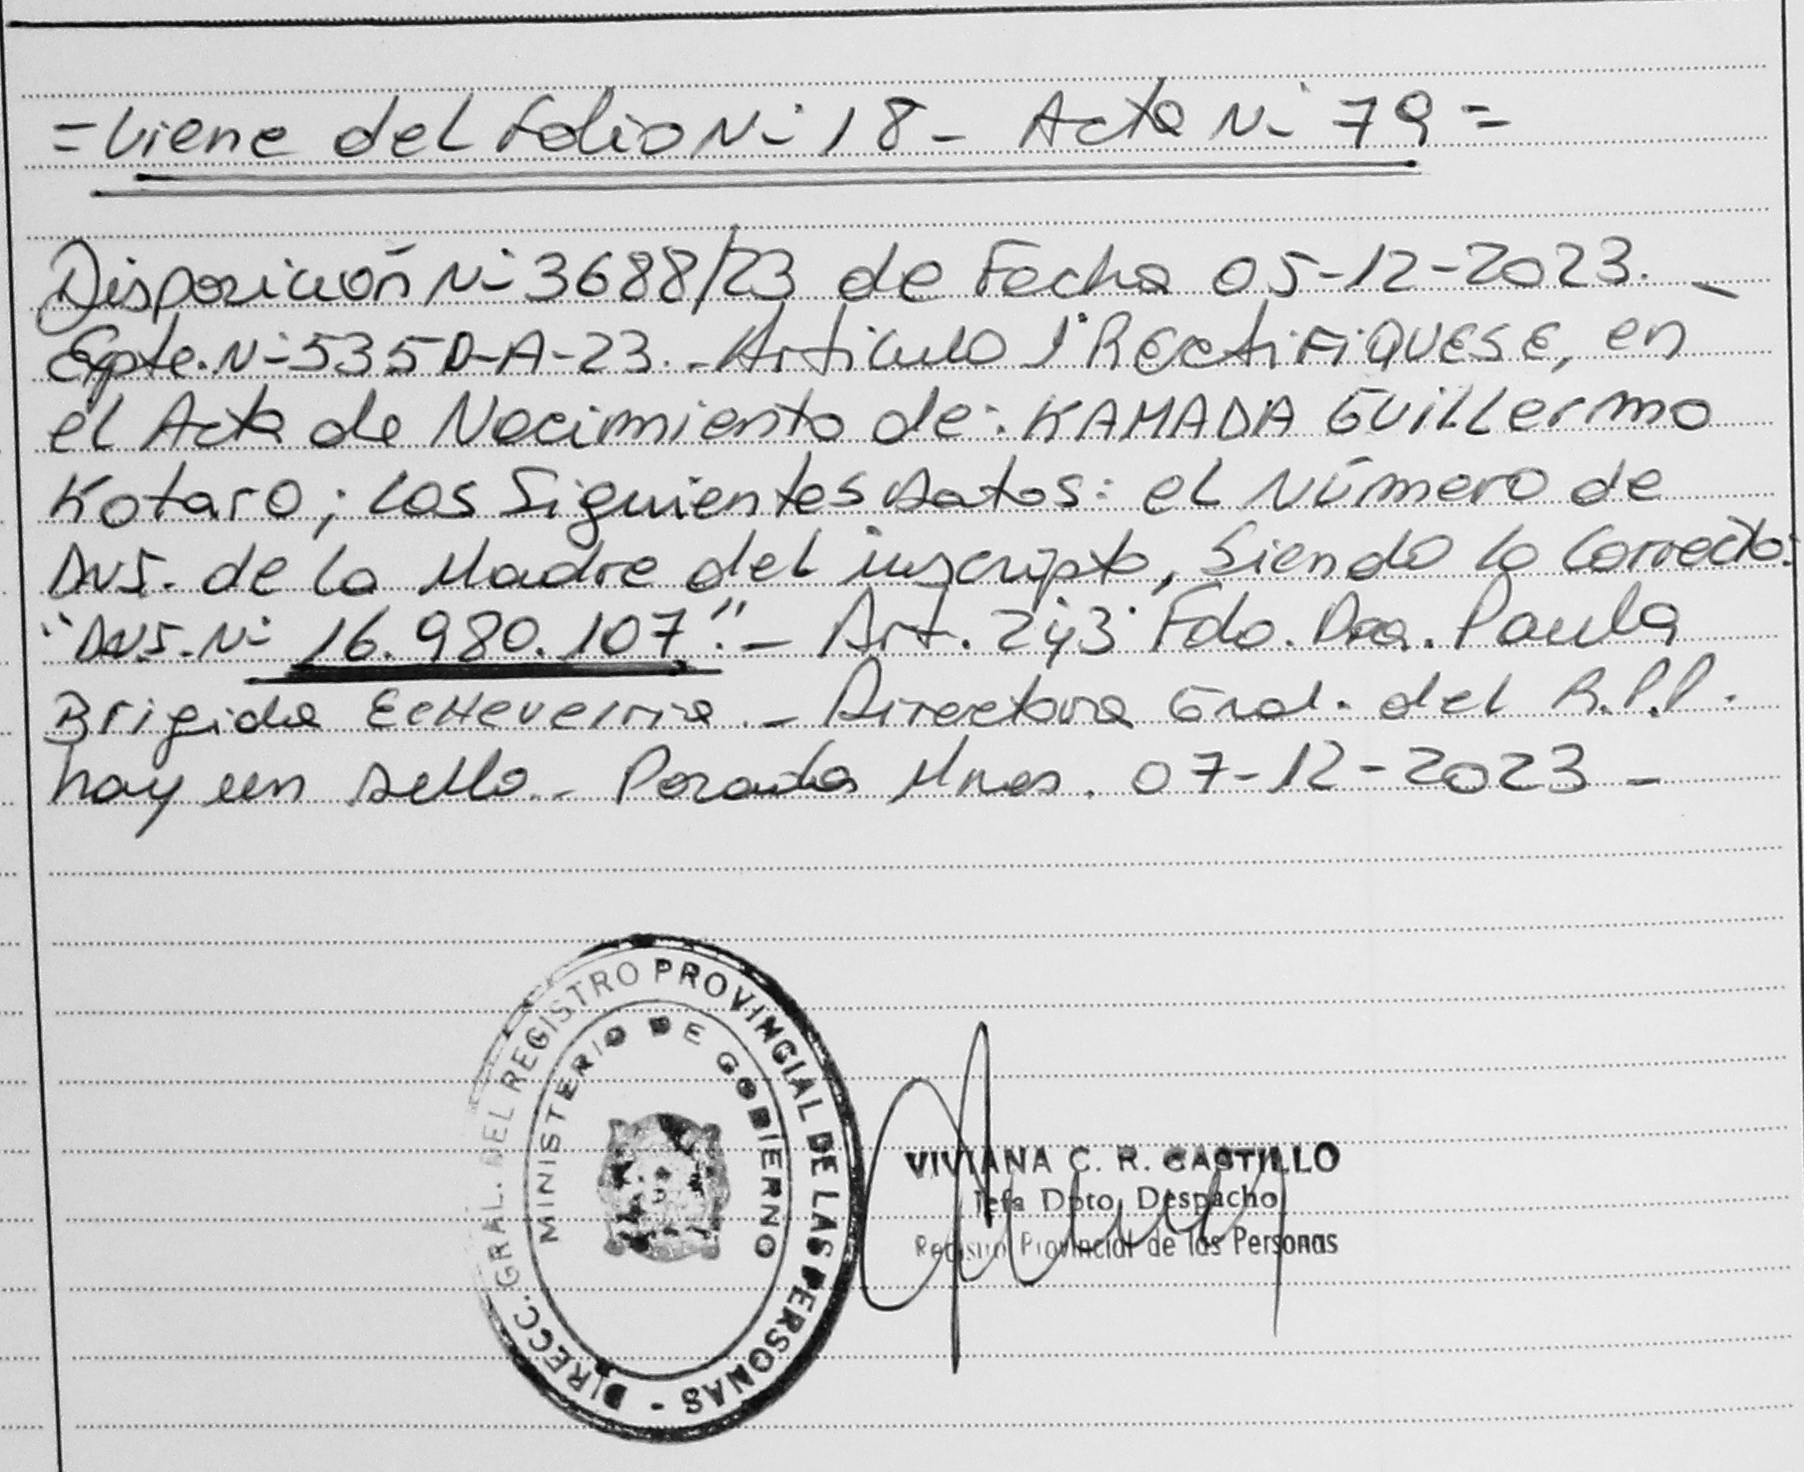 =Viene del Folio Nº 18- Acta Nº 79=
Disposición Nº 3688/23 de Fecha 05-12-2023.-
Expte. Nº 535 D-A-23.-Artículo 1º RECtiFiQUESE, en
el Acta de Nacimiento de: KAMADA GUILLermo
Kotaro; los Siguientes Datos: el Número de
DNI. de la Madre del inscripto, Siendo lo Correcto:
"DNI. Nº 16.980.107".- Art. 2y3º Fdo. Dra. Paula
Brigida EcHeverria.- Directora Gral. del R.P.P.
hay un sello.- Posadas Mnes. 07-12-2023-
DIRECC. GRAL. DEL REGISTRO PROVINCIAL DE LAS PERSONAS -
MINISTERIO DE GOBIERNO
VIVIANA C. R. CASTILLO
Jefa Dpto. Despacho
Registro Provincial de las Personas